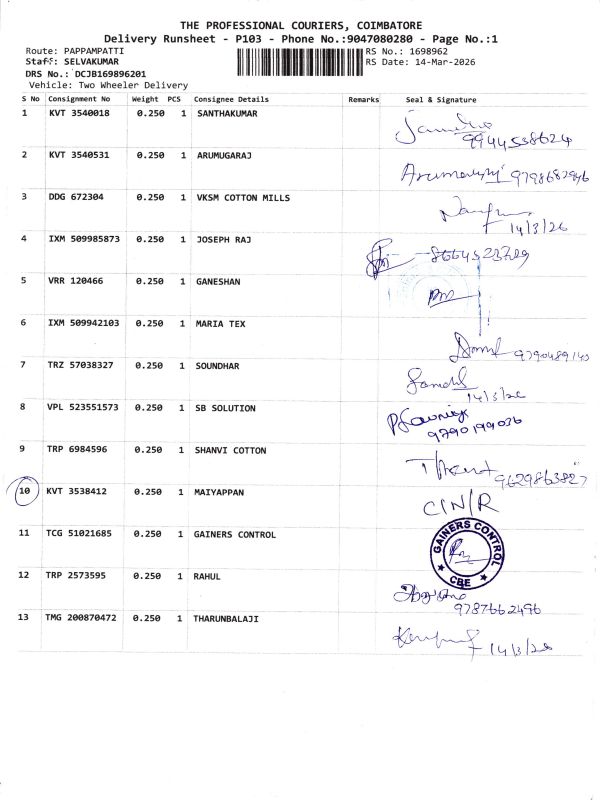 THE PROFESSIONAL COURIERS, COIMBATORE
Delivery Runsheet - P103 - Phone No.:9047080280 - Page No.:1
Route: PAPPAMPATTI RS No.: 1698962
Staff: SELVAKUMAR RS Date: 14-Mar-2026
DRS No.: DCJB169896201
Vehicle: Two Wheeler Delivery
S No Consignment No Weight PCS Consignee Details Remarks Seal & Signature
1 KVT 3540018 0.250 1 SANTHAKUMAR
9944538624
2 KVT 3540531 0.250 1 ARUMUGARAJ
Arumugaraj
3 DDG 672304 0.250 1 VKSM COTTON MILLS
14/3/26
4 IXM 509985873 0.250 1 JOSEPH RAJ
5 VRR 120466 0.250 1 GANESHAN
6 IXM 509942103 0.250 1 MARIA TEX
9790489140
7 TRZ 57038327 0.250 1 SOUNDHAR
14/3/26
8 VPL 523551573 0.250 1 SB SOLUTION
9790199036
9 TRP 6984596 0.250 1 SHANVI COTTON
9629863827
10 KVT 3538412 0.250 1 MAIYAPPAN C/N/R
11 TCG 51021685 0.250 1 GAINERS CONTROL
GAINERS CONTROL
CBE
12 TRP 2573595 0.250 1 RAHUL
9787662496
13 TMG 200870472 0.250 1 THARUNBALAJI
14/3/26